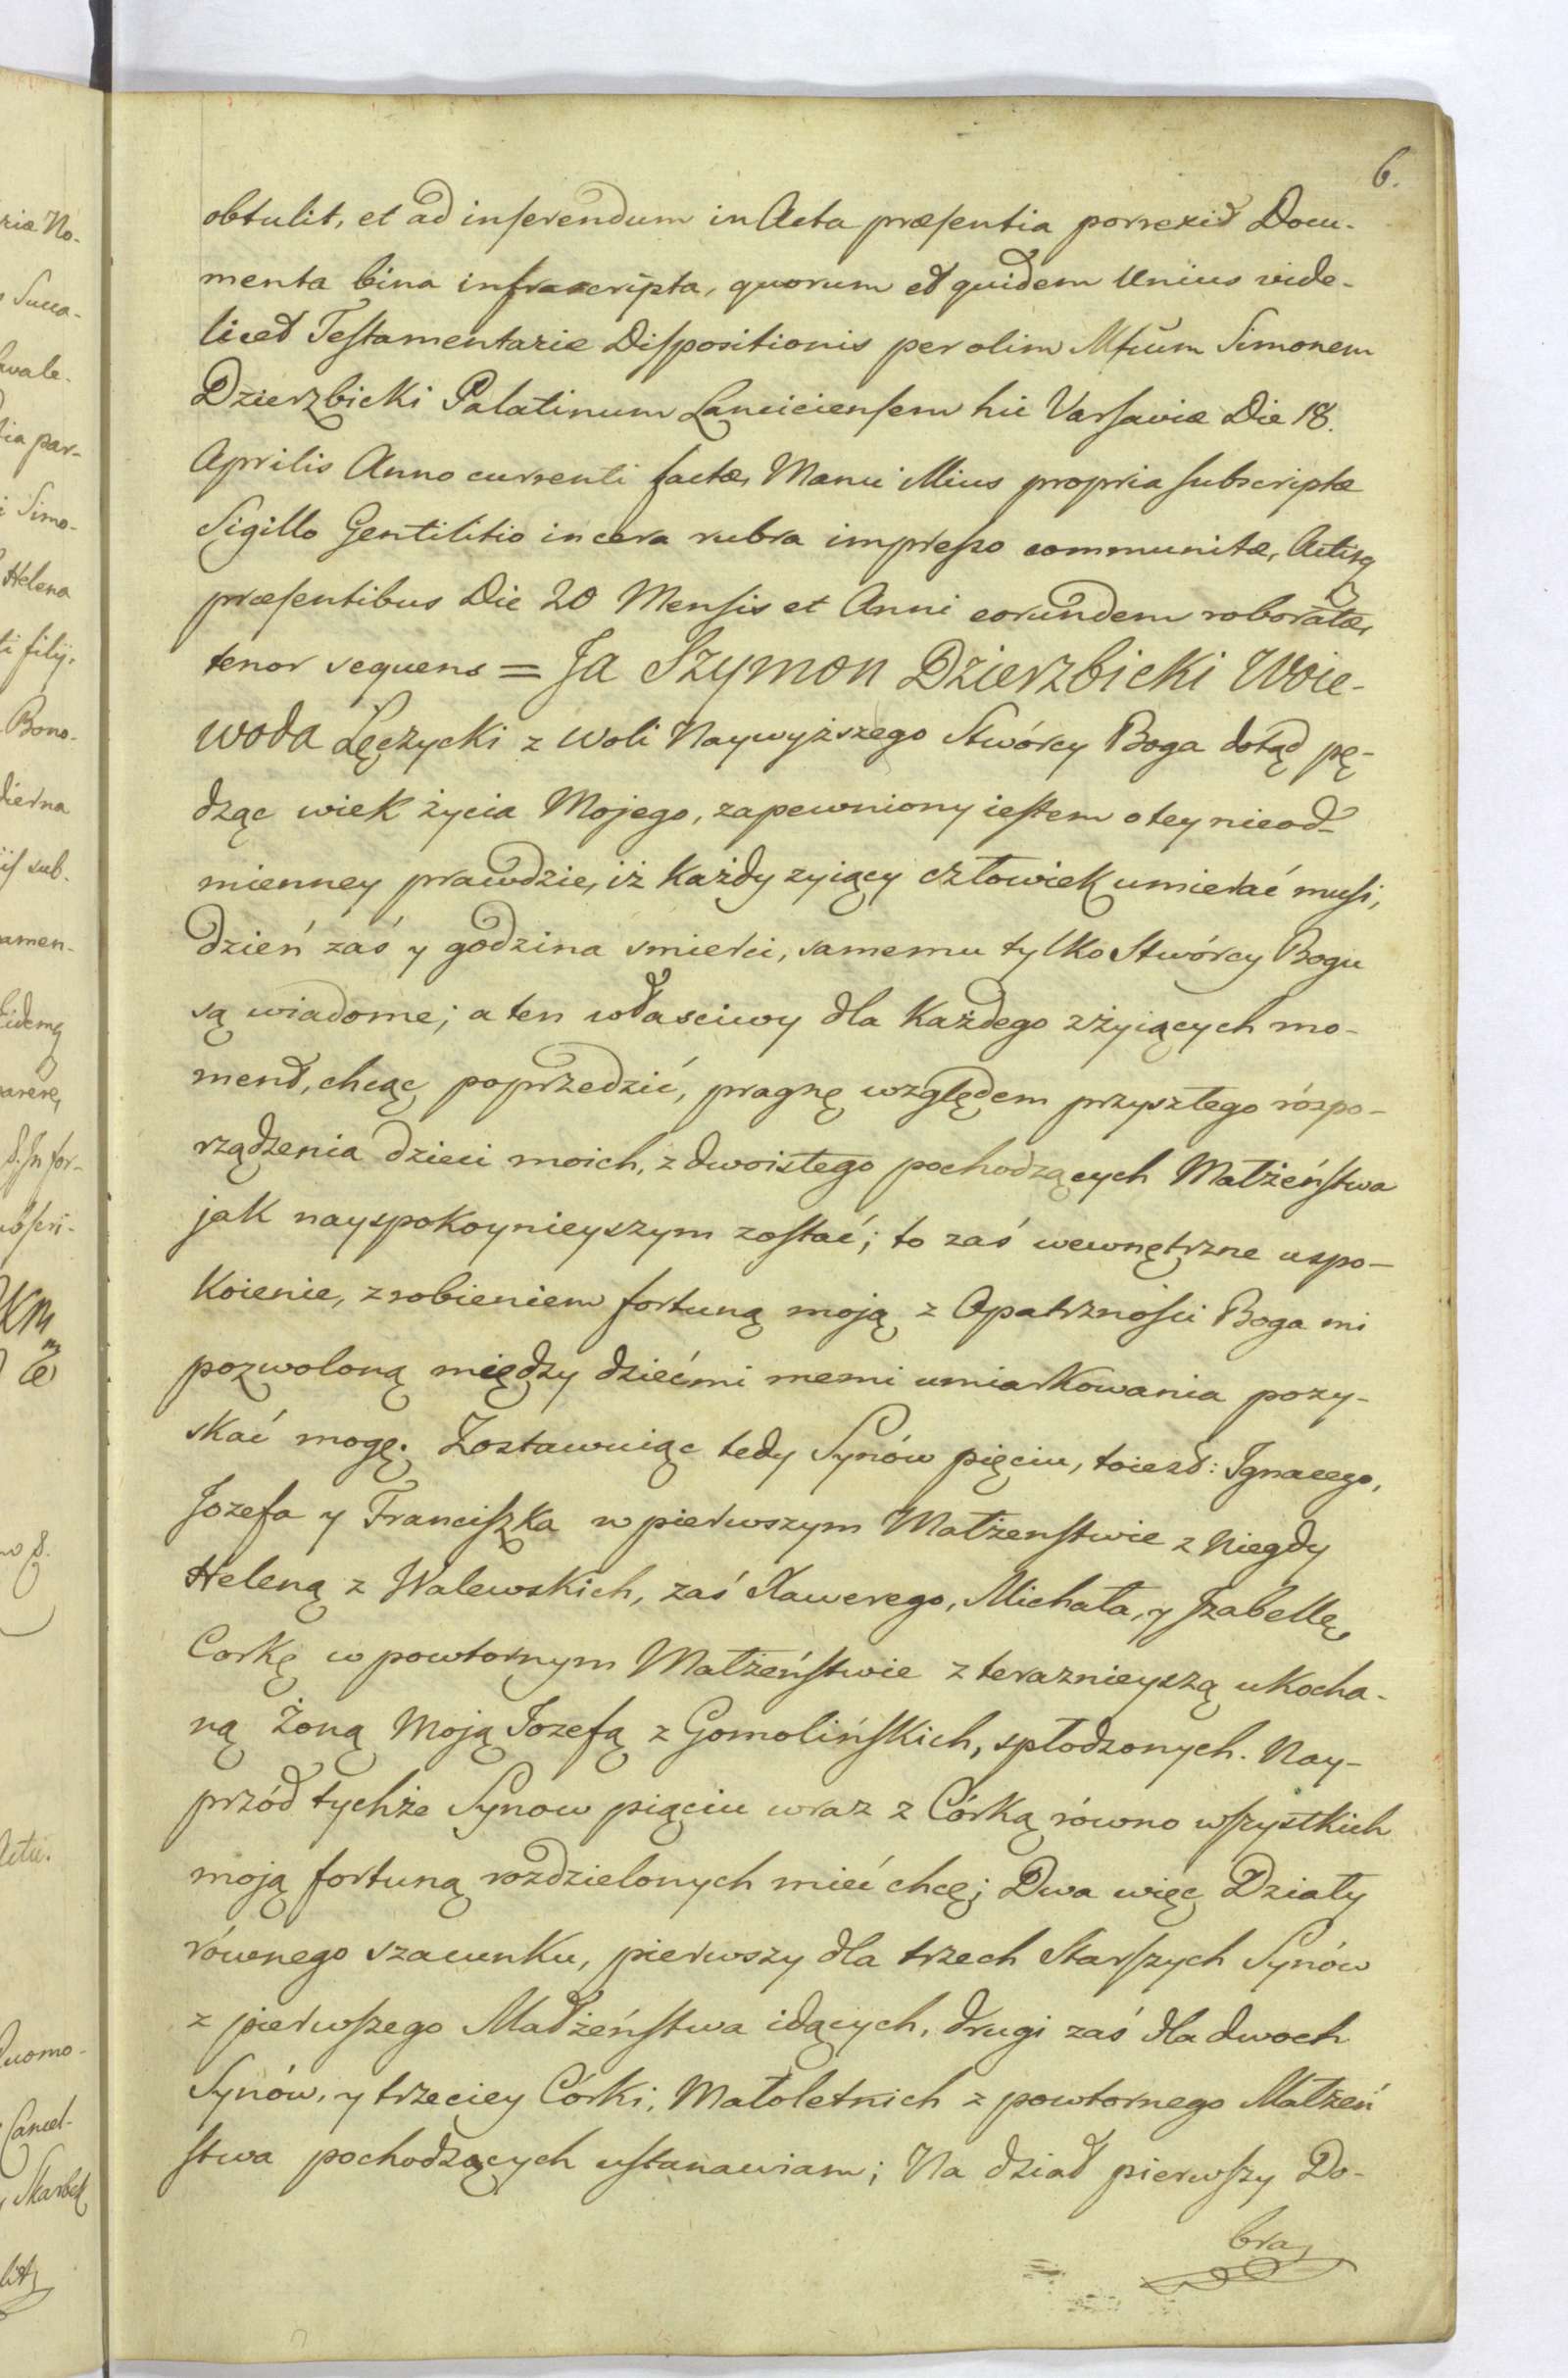 6.
obtulit, et ad inferendum in Acta præsentia porrexit Docu-
menta bina infrascripta, quorum et quidem Unius vide-
licet Testamentariæ Dispositionis per olim Mfcum Simonem
Dzierzbicki Palatinum Lanciciensem hic Varsaviæ Die 18.
Aprilis Anno currenti factæ, Manu Illius propria subscriptæ
Sigillo Gentilitio in cera rubra impresso communitæ, Actisq
præsentibus Die 20 Mensis et Anni eorundem roboratæ,
tenor sequens = Ja Szymon Dzierzbicki Woie-
woda Łęczycki z woli Naywyższego Stwórcy Boga dotąd pę-
dząc wiek życia Mojego, zapewniony iestem o tey nieod-
mienney prawdzie, iż każdy zyiący człowiek umierać musi,
dzień zaś y godzina smierci, samemu tylko Stwórcy Bogu
są wiadome; a ten własciwy dla każdego zżyiących mo-
ment, chcąc poprzedzić, pragnę względem przyszłego rózpo-
rządzenia dzieci moich, z dwoistego pochodzących Małżeństwa
jak nayspokoynieyszym zostać; to zaś wewnętrzne uspo-
koienie, zrobieniem fortuną moją z Opatrzności Boga mi
pozwoloną między dziećmi memi umiarkowania pozy-
skać mogę. Zostawuiąc tedy Synów pięciu, toiest: Ignacego,
Jozefa y Franciszka w pierwszym Małżenstwie z Niegdy
Heleną z Walewskich, zaś Xawerego, Michała, y Jzabellę
Corkę w powtornym Małżeństwie z teraznieyszą ukocha-
ną Żoną Moją Jozefą z Gomolińskich, spłodzonych. Nay-
przód tychże Synow pięciu wraz z Córką równo wszystkich
moją fortuną rozdzielonych mieć chcę; Dwa więc Działy
równego szacunku, pierwszy dla trzech Starszych Synów
z pierwszego Małżeństwa idących, drugi zaś dla dwoch
Synów, y trzeciey Córki, Małoletnich z powtornego Małżeń
stwa pochodzących ustanawiam; Na dział pierwszy Do-
bra,